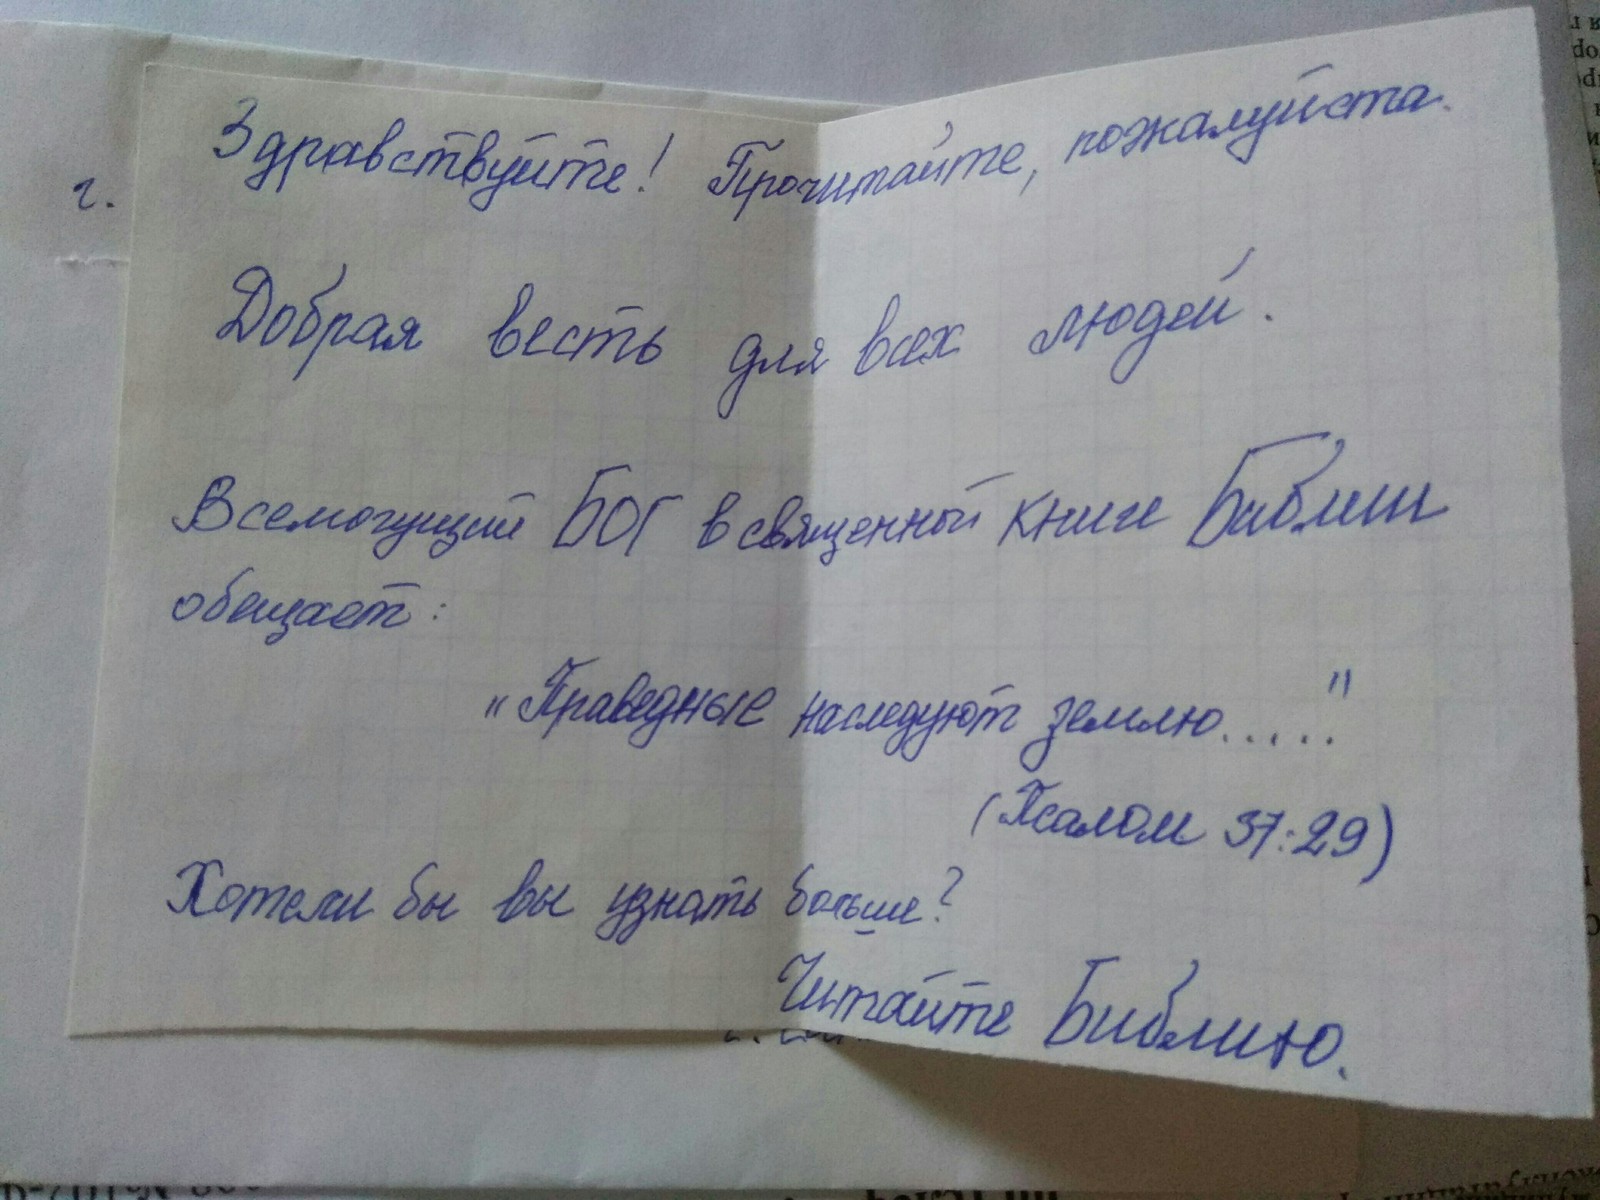 Здравствуйте! Прочитайте, пожалуйста.
г.
Добрая весть для всех людей.
Всемогущий БОГ в священной книге Библии
обещает:
"Праведные наследуют землю....."
(Псалом 37:29)
Хотели бы вы узнать больше?
Читайте Библию.